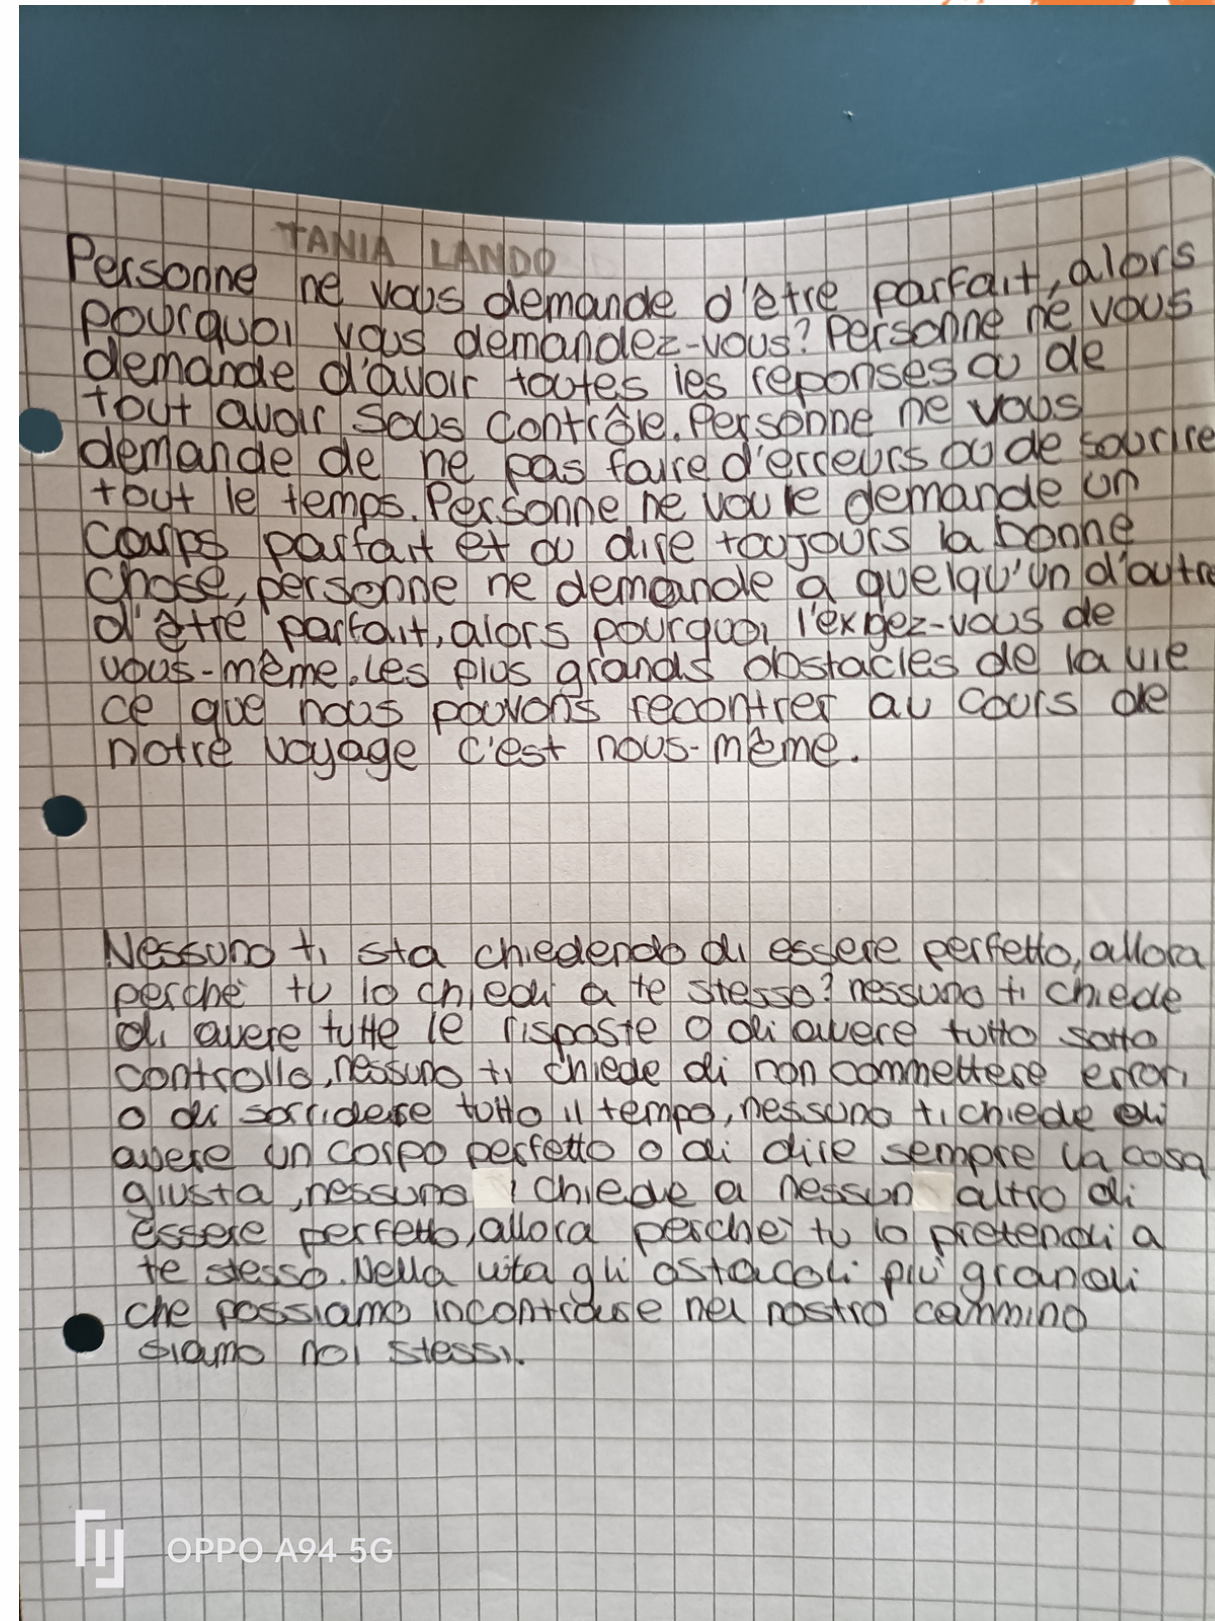 TANIA LANDO
Personne ne vous demande d'être parfait, alors
pourquoi vous demandez-vous? Personne ne vous
demande d'avoir toutes les reponses ou de
tout avoir sous contrôle. Personne ne vous
demande de ne pas faire d'erreurs ou de sourire
tout le temps. Personne ne vou le demande un
corps parfait et ou dire toujours la bonne
chose, personne ne demande a quelqu'un d'autre
d'être parfait, alors pourquoi l'exigez-vous de
vous-même. Les plus grands obstacles de la vie
ce que nous pouvons recontrer au cours de
notre voyage c'est nous-même.
Nessuno ti sta chiedendo di essere perfetto, allora
perche tu lo chiedi a te stesso? nessuno ti chiede
di avere tutte le risposte o di avere tutto sotto
controllo, nessuno ti chiede di non commettere errori
o di sorridere tutto il tempo, nessuno ti chiede di
avere un corpo perfetto o di dire sempre la cosa
giusta, nessuno chiede a nessun altro di
essere perfetto, allora perche tu lo pretendi a
te stesso. Nella vita gli ostacoli più grandi
che possiamo incontrare nel nostro cammino
siamo noi stessi.
OPPO A94 5G